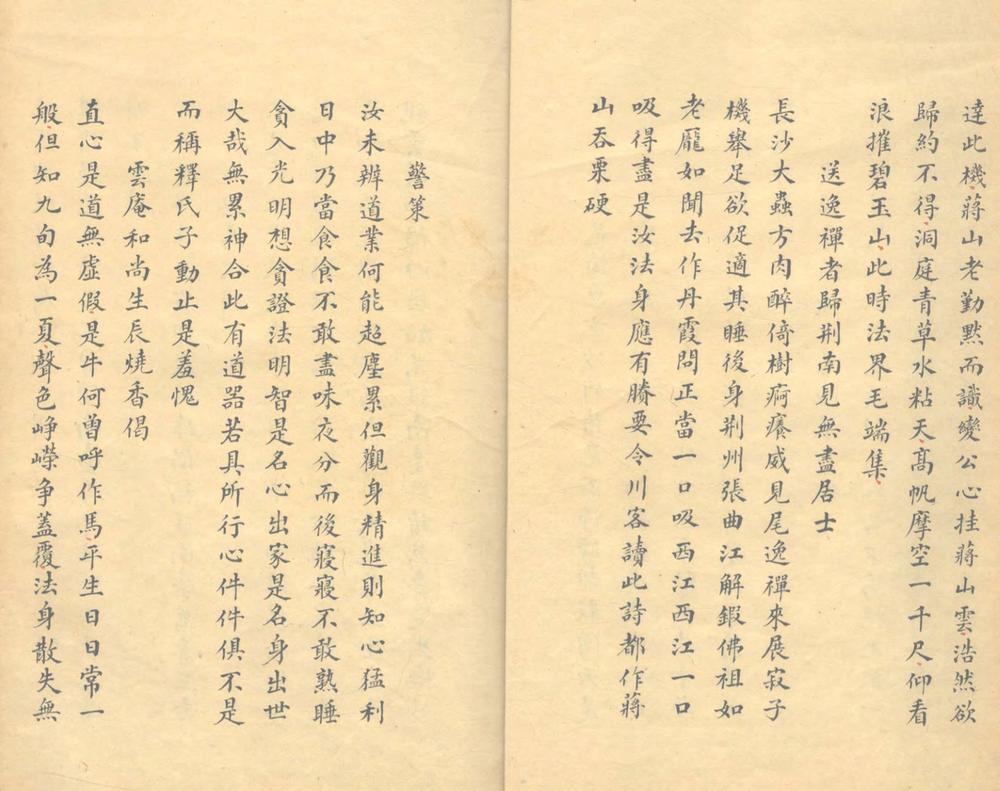 達此機蔣山老勤黙而識變公心挂蔣山雲浩然欲
歸約不得洞庭青草水粘天髙帆摩空一千尺仰看
浪摧碧玉山此時法界毛端集
送逸禪者歸荆南見無盡居士
長沙大蟲方肉醉倚樹痾癢威見尾逸禪來展寂子
機舉足欲促適其睡後身荆州張曲江解鍜佛祖如
老龎如聞去作丹霞問正當一口吸西江西江一口
吸得盡是汝法身應有賸要令川客讀此詩都作蔣
山吞栗硬
警策
汝未辦道業何能超塵累但觀身精進則知心猛利
日中乃當食食不敢盡味夜分而後寢寢不敢熟睡
貪入光明想貪證法明智是名心出家是名身出世
大哉無累神合此有道器若具所行心件件俱不是
而稱釋氏子動止是羞愧
雲庵和尚生辰燒香偈
直心是道無虚假是牛何曽呼作馬平生日日常一
般但知九旬為一夏聲色崢嶸争蓋覆法身散失無